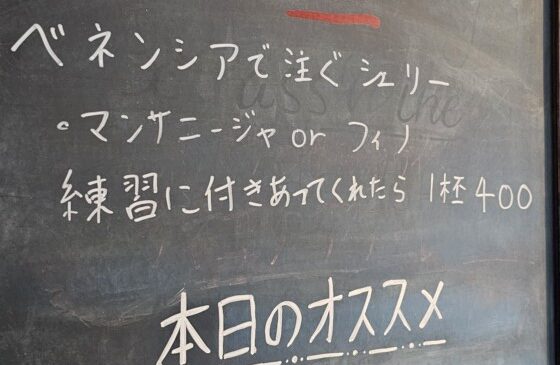 ベネンシアで注ぐシェリー
・マンサニージャ or フィノ
練習に付きあってくれたら 1杯400
本日のオススメ